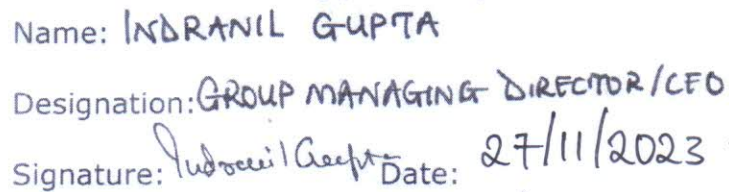 Name: INDRANIL GUPTA
Designation: GROUP MANAGING DIRECTOR/CEO
Signature: Indranil Gupta Date: 27/11/2023